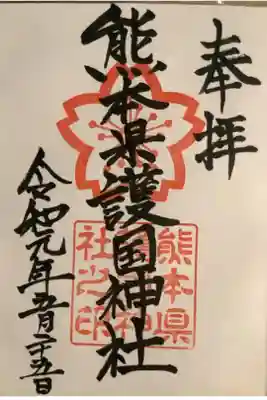 奉拝
熊本県護国神社
令和元年五月二十五日
熊本県
護国神
社之印